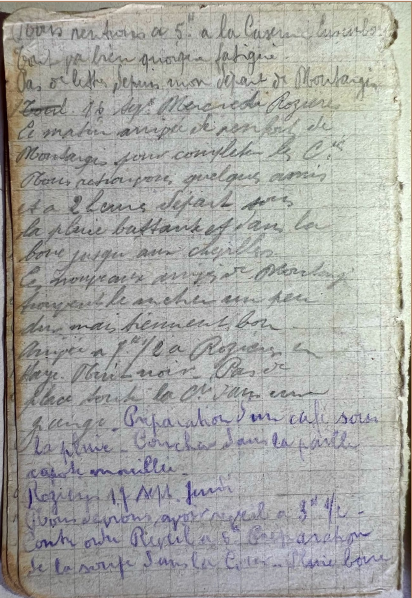 Nous rentrons a 5h a la Caserne
Tout va bien quoique fatigué.
Pas de lettre depuis mon départ de Montargis
16 Sept. Mercredi Rozieres
Ce matin arrivée de renfort de
Montargis pour completer les Cies
Nous retrouvons quelques amis
et a 2 heures départ sous
la pluie battante et dans la
boue jusqu aux chevilles
Ces nouveaux arrivés de Montargis
trouvent le marcher un peu
dur mais tiennent bon
Arrivée a 7h 1/2 a Rozieres en
Haye. Nuit noire. Pas de
place toute la Cie dans une
grange. Préparation d'un café sous
la pluie. Coucher dans la paille
capote mouillée.
Rozieres 17 Sept. Jeudi
Nous devions avoir reveil a 3h 1/2 -
Contre ordre Reveil a 5h Préparation
de la soupe dans la Cour. Pluie boue